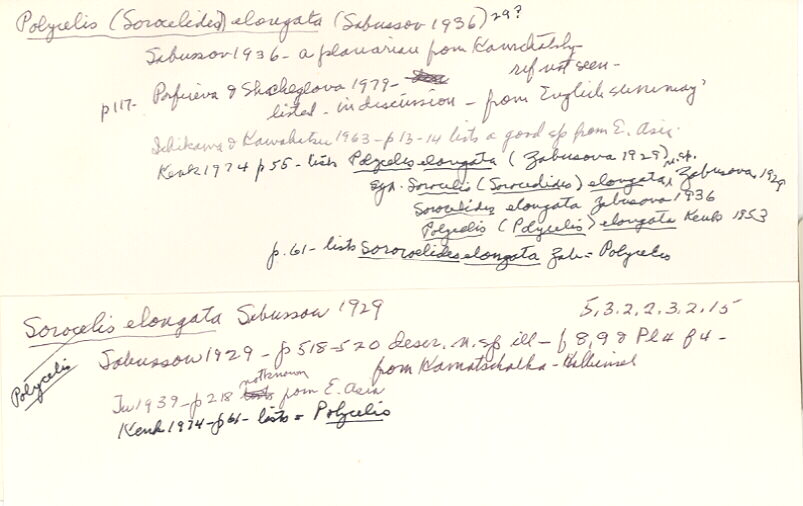 Polycelis (Sorocelides) elongata (Sabussov 1936) 29?
Sabussov 1936 - a planarian from Kamchatka -
ref not seen -
p117 - Porfireva & Shcheglova 1979 -
listed - in discussion - from English summary
Ichikawa & Kawakatsu 1963 - p13-14 lists a good sp from E. Asia.
Kenk 1974 p55 - lists Polycelis elongata (Zabusova 1929) n.sp.
syn. Sorocelis (Sorocelides) elongata, Zabusova, 1929
Sorocelides elongata Zabusova 1936
Polycelis (Polycelis) elongata Kenk 1953
p.61 - lists Sorocelides elongata Zab = Polycelis
Sorocelis elongata Sabussow 1929
5,3.2,2,3,2,15
Polycelis
Sabussow 1929 - p518-520 descr. n.sp ill - f 8,9 & Pl 4 f 4 -
from Kamatschatka - Halbinsel
not known
Iu 1939 - p218 from E. Asia
Kenk 1974 - p61 - lists = Polycelis